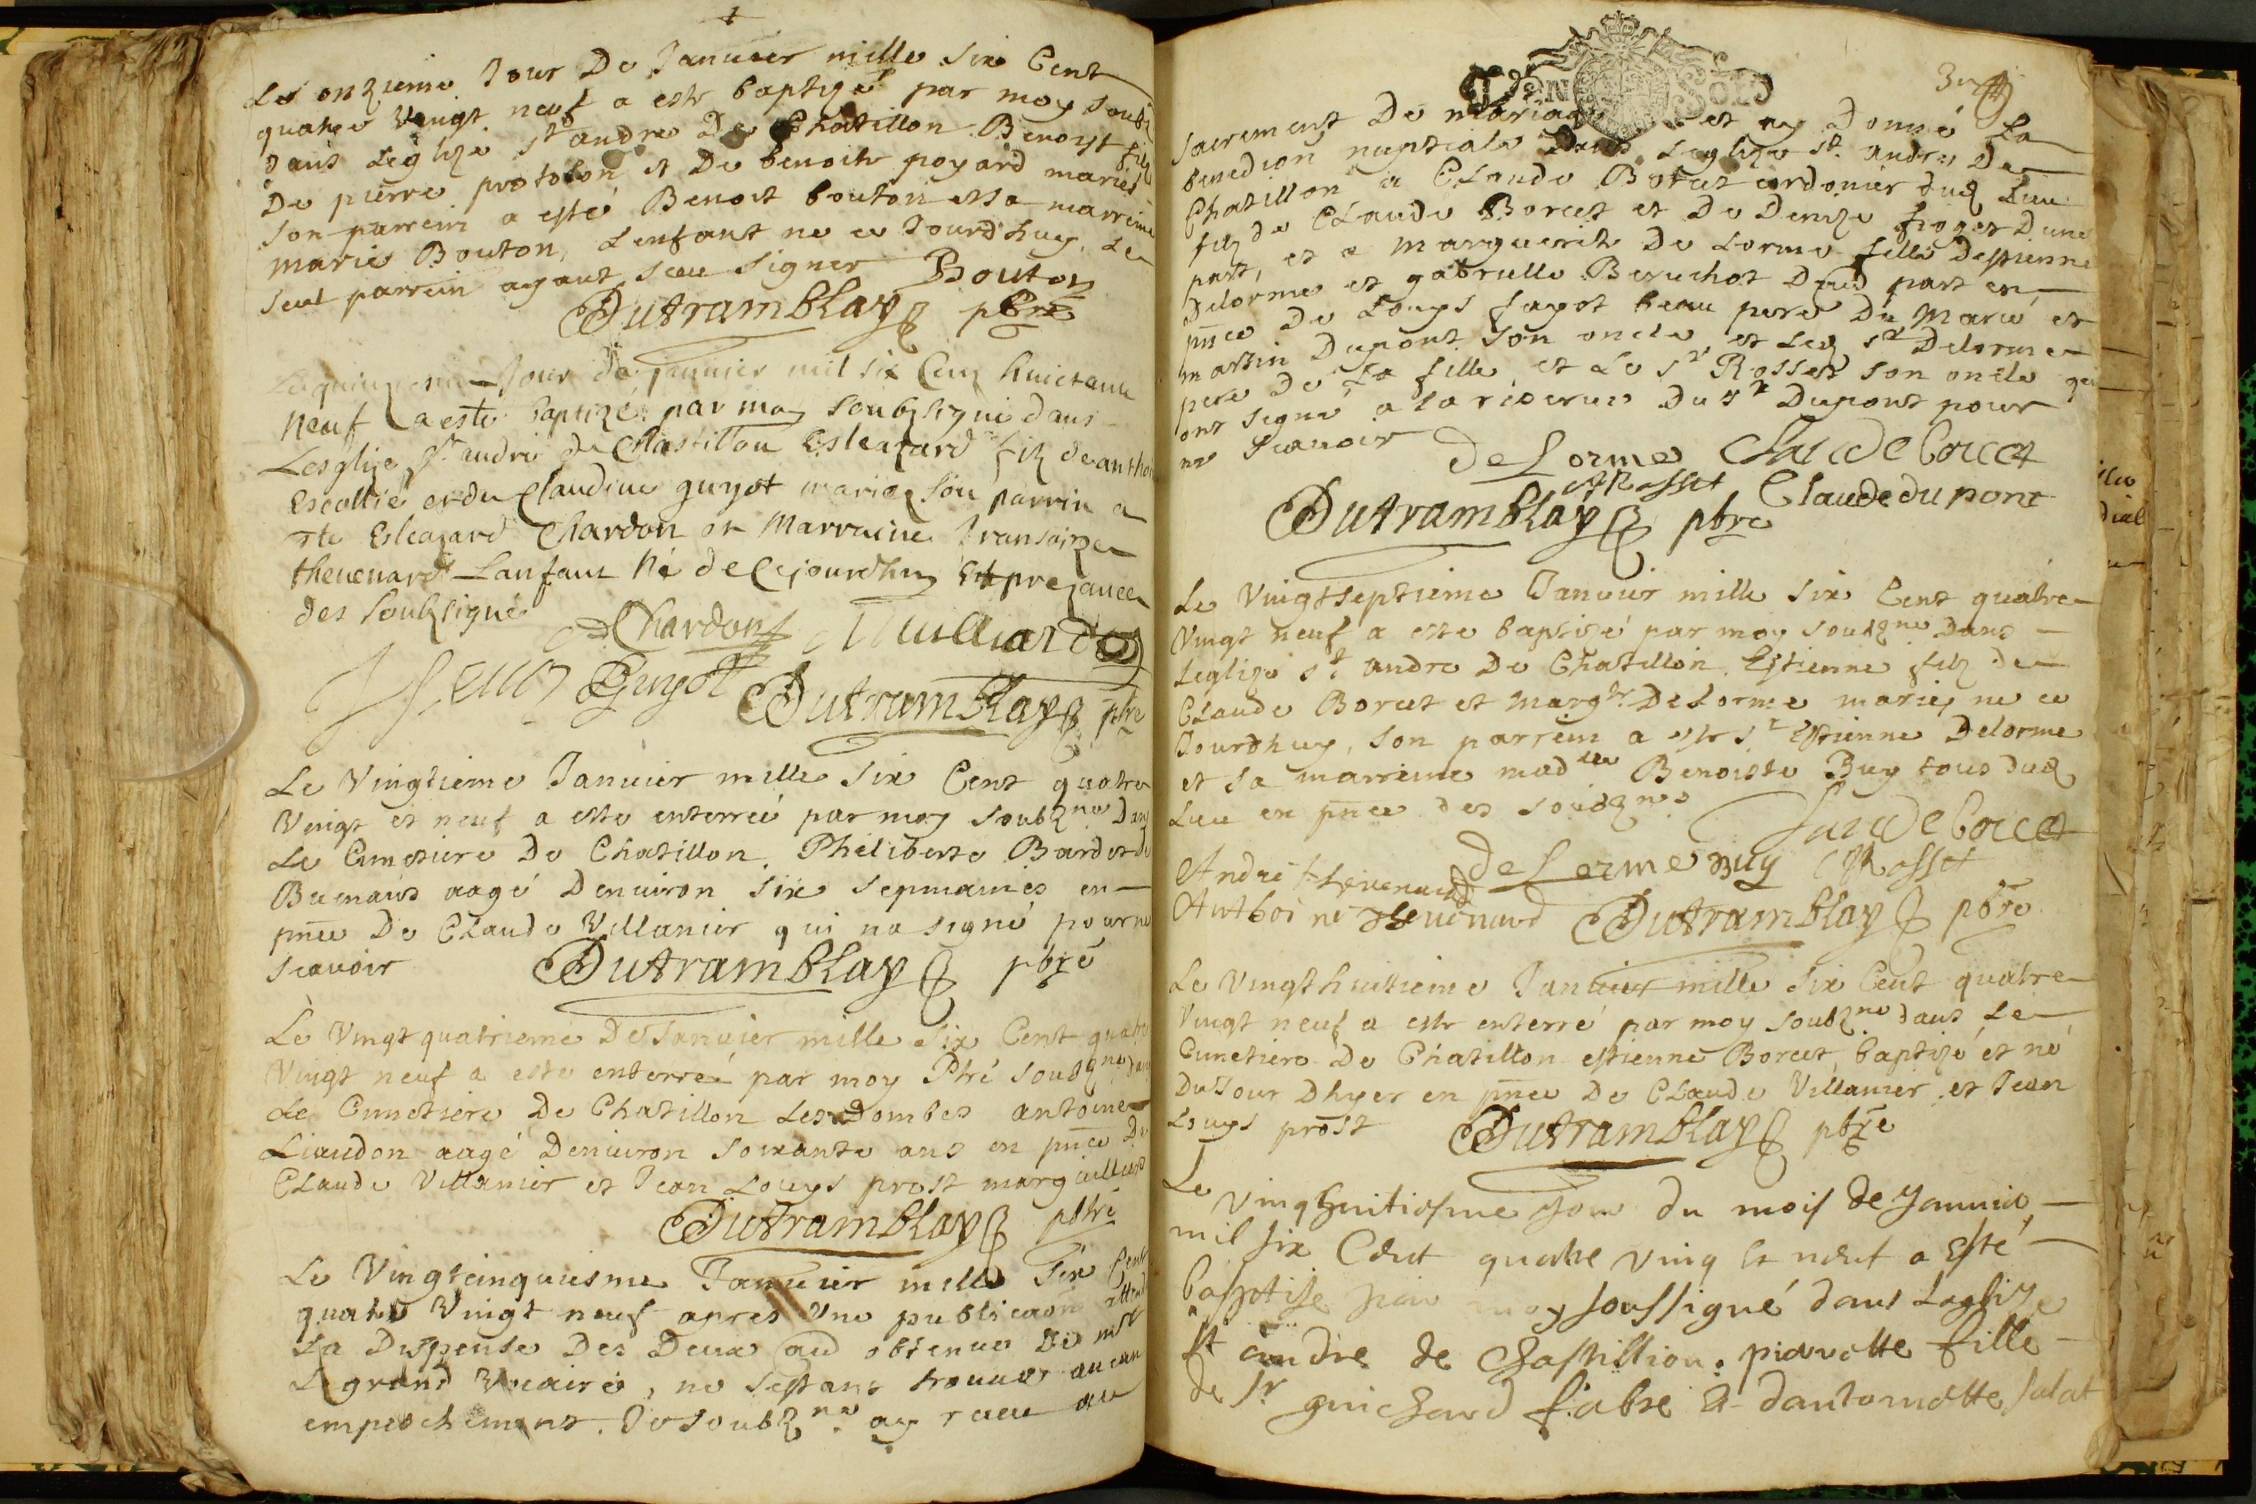 Le onzieme Jour De Januier mille Six Cent
quatre Vingt neuf a este baptizé par moy soubz
dans Leglize st andre De Chatillon Benoist filz
De pierre protolon et De benoite poyard mariés
Son parrein a esté Benoist bouton et sa marreine
marie Bouton, Lenfant ne ce Jourdhuy, Le
seul parrein ayant sceu signer Bouton
Dutramblay pbre
Le quinzieme Jour de januier mil six Cens huictante
neuf a este baptizé par moy soubzsigné dans
Lesglize st andré de Chastillon Esleazard filz de anthoi
Escollie et de Claudine guyot mariez son parrin a
ste Eleazard Chardon et Marraine fransoize
theuenard Lanfant né de Cejourdhuy Et prezance
des soubzsigné
Chardon Muilliard
Guyot
Dutramblay pbre
Le Vingtieme Januier mille Six Cent quatre
Vingt et neuf a este enterreé par moy soubz.ne Dans
Le Cimetiere De Chatillon. Philiberte Bardet de
Buenans aagé Denuiron six sepmaines en
pnce De Claude Villanier qui na signé pour ne
scauoir Dutramblay pbre
Le Vingt quatrieme De Januier mille Six Cent quatre
Vingt neuf a este enterré par moy Pbre soubz.ne dans
Le Cimetiere De Chatillon Les Dombes antoine
Liaudon aagé Denuiron soixante ans en pnce De
Claude Villanier et Jean Louys prost marguilliers
Dutramblay pbre
Le Vingtcinquiesme Januier mille Six Cent
quatre Vingt neuf apres Vne publicaon attendu
La Dispense Des Deux aud obtenue De mr
Le grand Vicaire, ne sestant trouué aucun
empeschement. Je soubz.ne ay receu au
sacrement De mariage et ay Donné La
benediction nuptiale Dans Leglize st. andre De
Chatillon a Claude Borcet cordonier dud Lieu
filz de Claude Borcet et De Denize fioget Dune
part, et a Marguerite De Lorme fille Destienne
Delorme et gabrielle Beruchot Daud part en
pnce De Louys fayot beau pere Du Marié et
martin Dupont son oncle, et Led sr Delorme
pere De La fille, et Le sr Rosset son oncle qui
ont signé a la reserue Du sr Dupont pour
ne scauoir
deLorme Claude Borcet
Rosset Claude dupont
Dutramblay pbre
Le Vingtseptieme Januier mille six Cent quatre
Vingt neuf a este baptizé par moy soubz.ne Dans
Leglize st andre De Chatillon, Estienne filz de
Claude Borcet et Margte DeLorme mariez ne ce
Jourdhuy, son parrein a este sr Estienne Delorme
et sa marreine madlle Benoiste Buy tous dud
Lieu en pnce des soubz.nes
Claude Borcet
André theuenard deLorme Buy Rosset
Anthoine theuenard Dutramblay pbre
Le Vingthuitieme Januier mille Six Cent quatre
Vingt neuf a este enterré par moy soubz.ne dans Le
Cimetiere De Chatillon estienne Borcet, baptizé et né
Du Jour Dhyer en pnce De Claude Villanier et Jean
Louys prost Dutramblay pbre
Le vinghuitiesme Jour du mois de Januier
mil six Cent quatre ving et neuf a esté
baptise par moy soussigné dans Leglize
st andre de Chastillion. pierrette fille
de sr guichard fabre et dantoinette salat